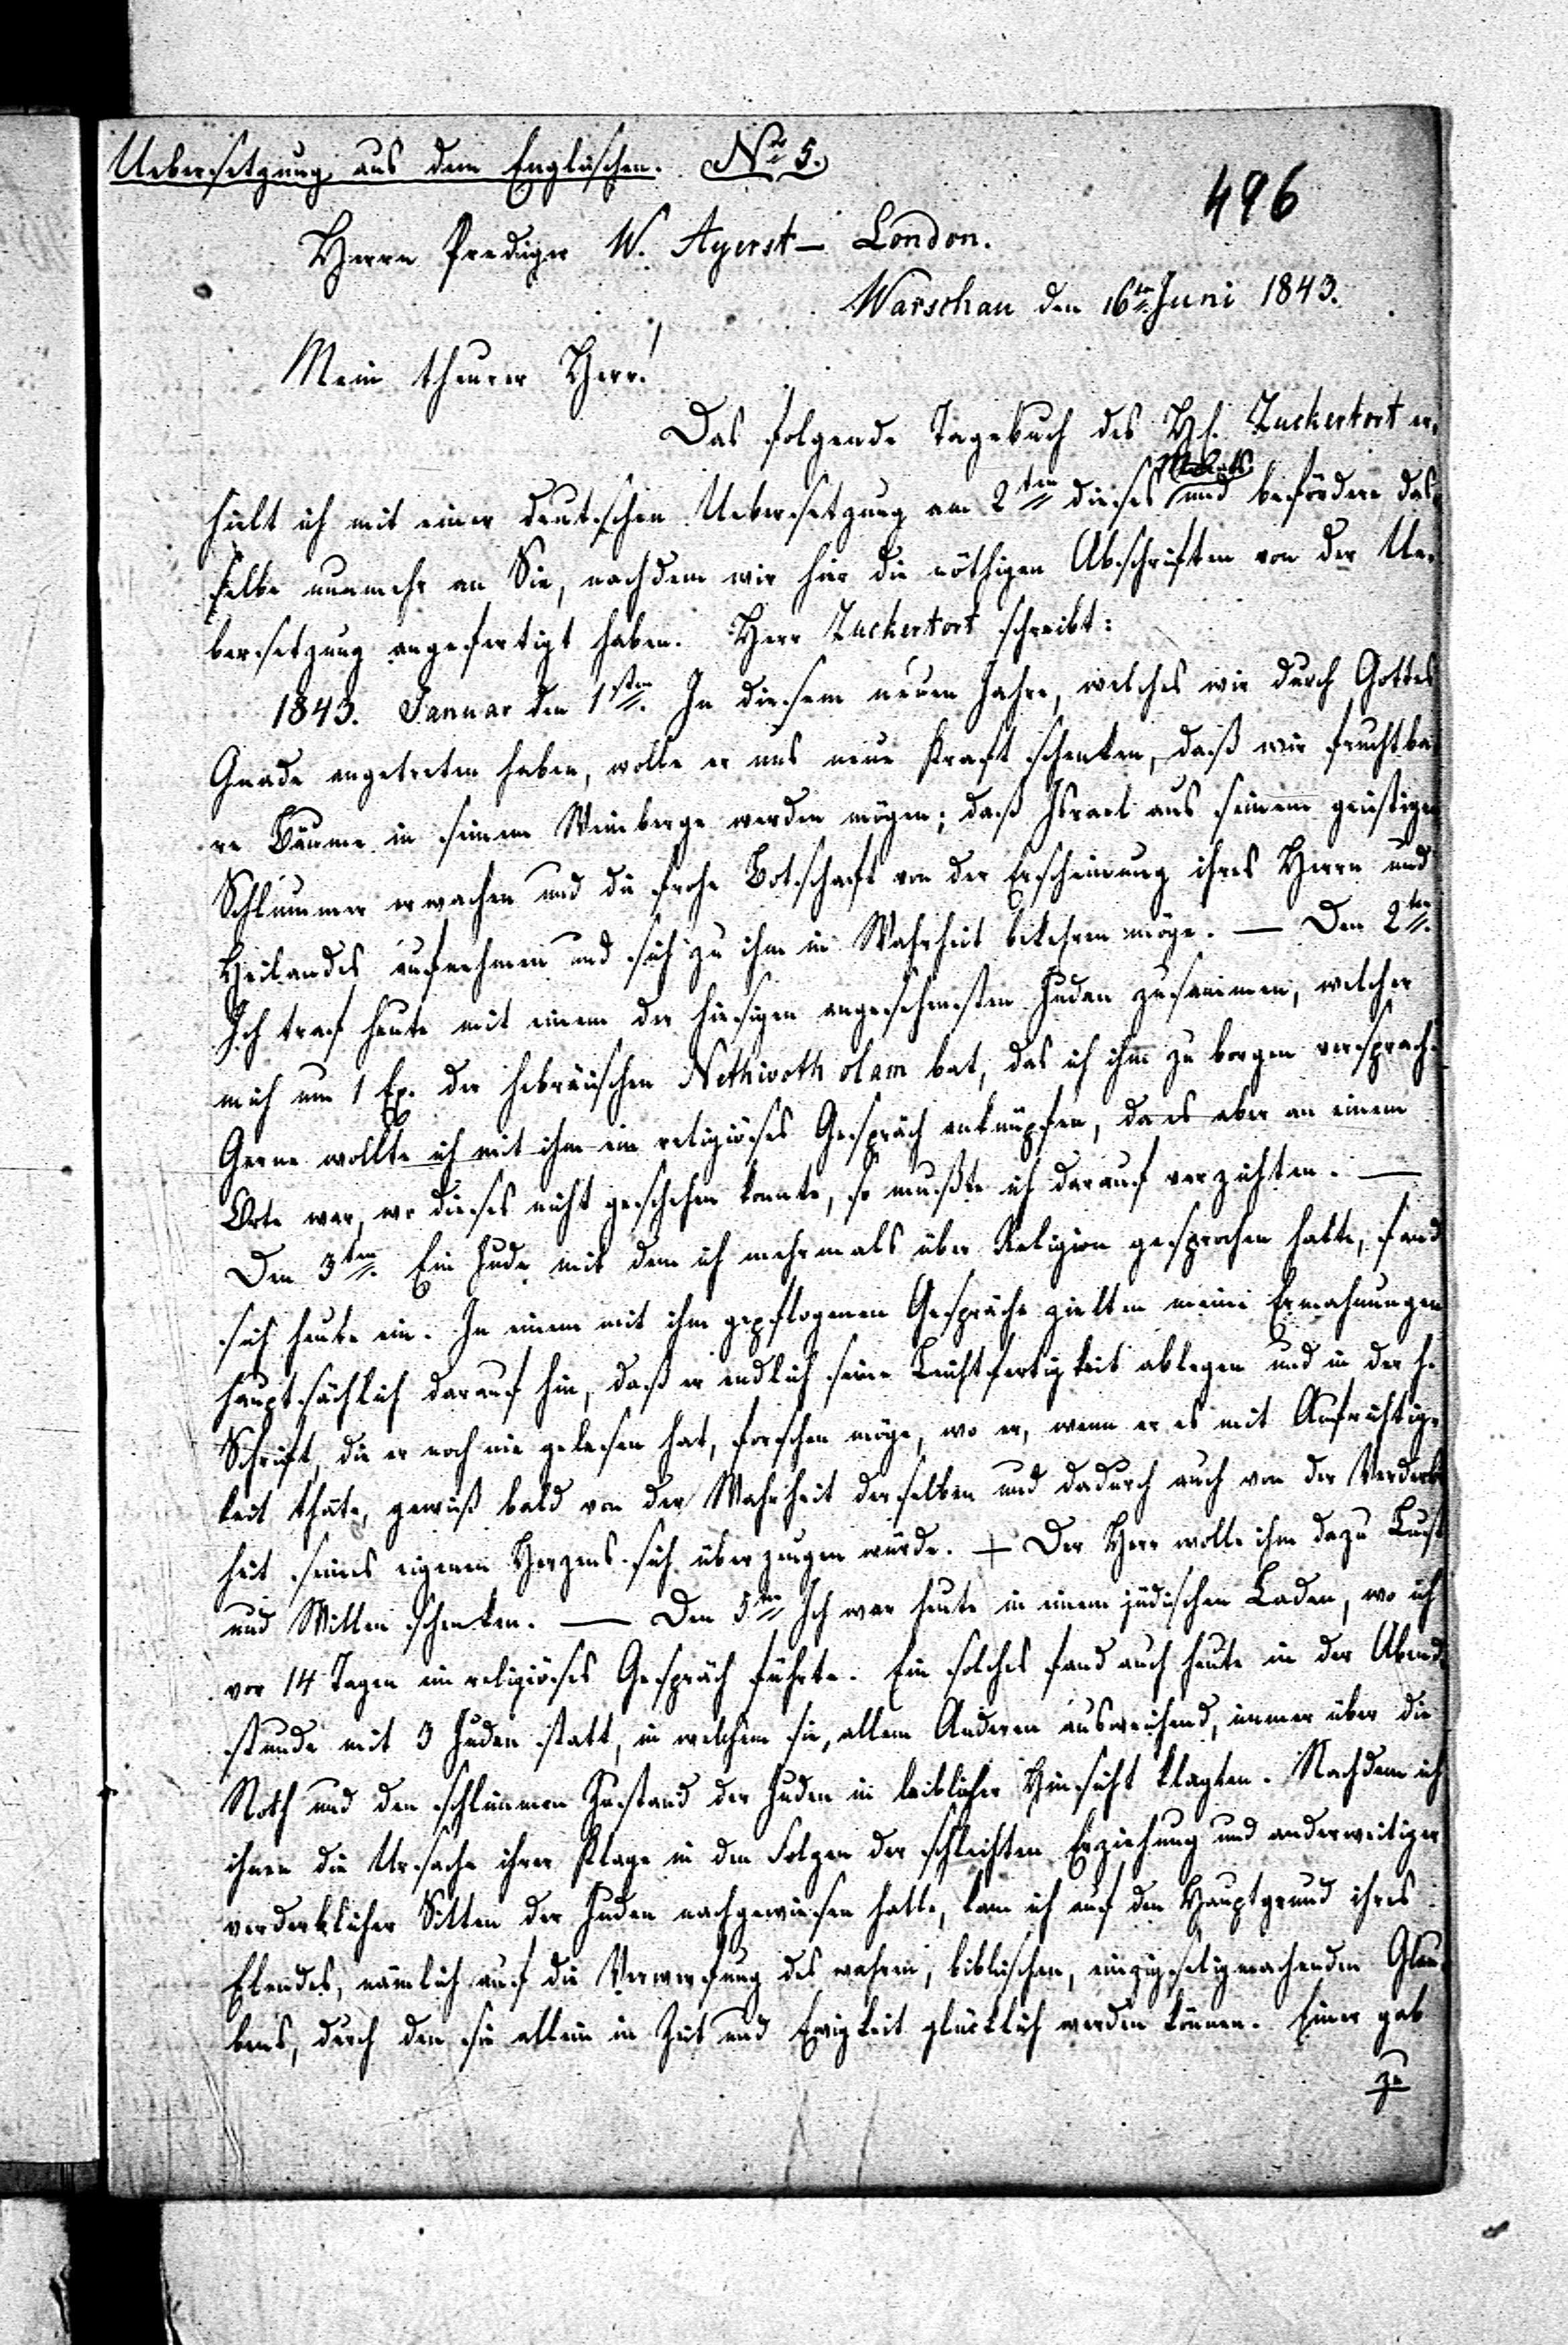 Uebersetzung aus dem Englischen. No 5.
496
Herrn Prediger W. Ayerst – London.
Warschau den 16ten Juni 1843.
Mein theurer Herr!
Das folgende Tagebuch des H. Zuckertort er-
hielt ich mit einer deutschen Uebersetzung am 2ten dieses Monats und befördere das-
selbe nunmehr an Sie, nachdem wir hier die nöthigen Abschriften von der Ue-
bersetzung angefertigt haben. Herr Zuckertort schreibt:
1843. Januar den 1sten. In diesem neuen Jahre, welches wir durch Gottes
Gnade angetreten haben, wolle er uns neue Kraft schenken, daß wir fruchtba-
re Bäume in seinem Weinberge werden mögen; daß Israel aus seinem geistigen
Schlummer erwachen und die frohe Botschaft von der Erscheinung ihres Herrn und
Heilandes aufnehmen und sich zu ihm in Wahrheit bekehren möge. — Den 2ten.
Ich traf heute mit einem der hiesigen angesehensten Juden zusammen, welcher
mich um 1 Ex. der hebräischen Nethivoth olam bat, das ich ihm zu borgen versprach.
Gerne wollte ich mit ihm ein religiöses Gespräch anknüpfen, da es aber an einem
Orte war, wo dieses nicht geschehen konnte, so mußte ich darauf verzichten. —
Den 3ten. Ein Jude mit dem ich mehrmals über Religion gesprochen hatte, fand
sich heute ein. In einem mit ihm gepflogenen Gespräche zielten meine Ermahnungen
hauptsächlich darauf hin, daß er endlich seine Leichtfertigkeit ablegen und in der h.
Schrift, die er noch nie gelesen hat, forschen möge, wo er, wenn er es mit Aufrichtig-
keit thäte, gewiß bald von der Wahrheit derselben und dadurch auch von der Verderbt-
heit seines eigenen Herzens sich überzeugen würde. + Der Herr wolle ihm dazu Lust
und Willen schenken. — Den 5ten Ich war heute in einem jüdischen Laden, wo ich
vor 14 Tagen ein religiöses Gespräch führte. Ein solches fand auch heute in der Abend-
stunde mit 3 Juden statt, in welchem sie, allem Anderen ausweichend, immer über die
Noth und den schlimmen Zustand der Juden in leiblicher Hinsicht klagten. Nachdem ich
ihnen die Ursache ihrer Klage in den Folgen der schlechten Erziehung und anderweitiger
verderblicher Sitten der Juden nachgewiesen hatte, kam ich auf den Hauptgrund ihres
Elendes, nämlich auf die Verwerfung des wahren, biblischen, einzigseligmachenden Glau-
bens, durch den sie allein in Zeit und Ewigkeit glücklich werden können. Einer gab
zu